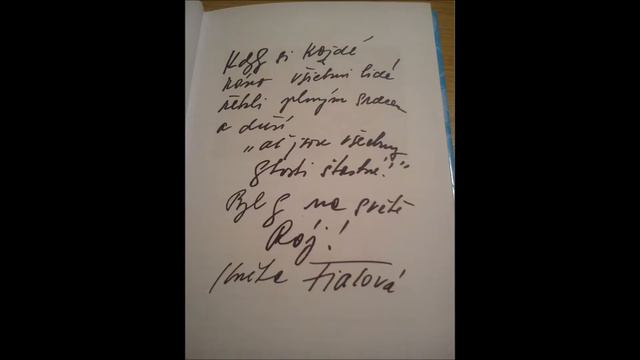 Kdyby si každé
ráno všichni lidé
řekli plným srdcem
a duší
„ať jsou všechny
bytosti šťastné!"
Byl by na světě
Ráj!
Květa Fialová